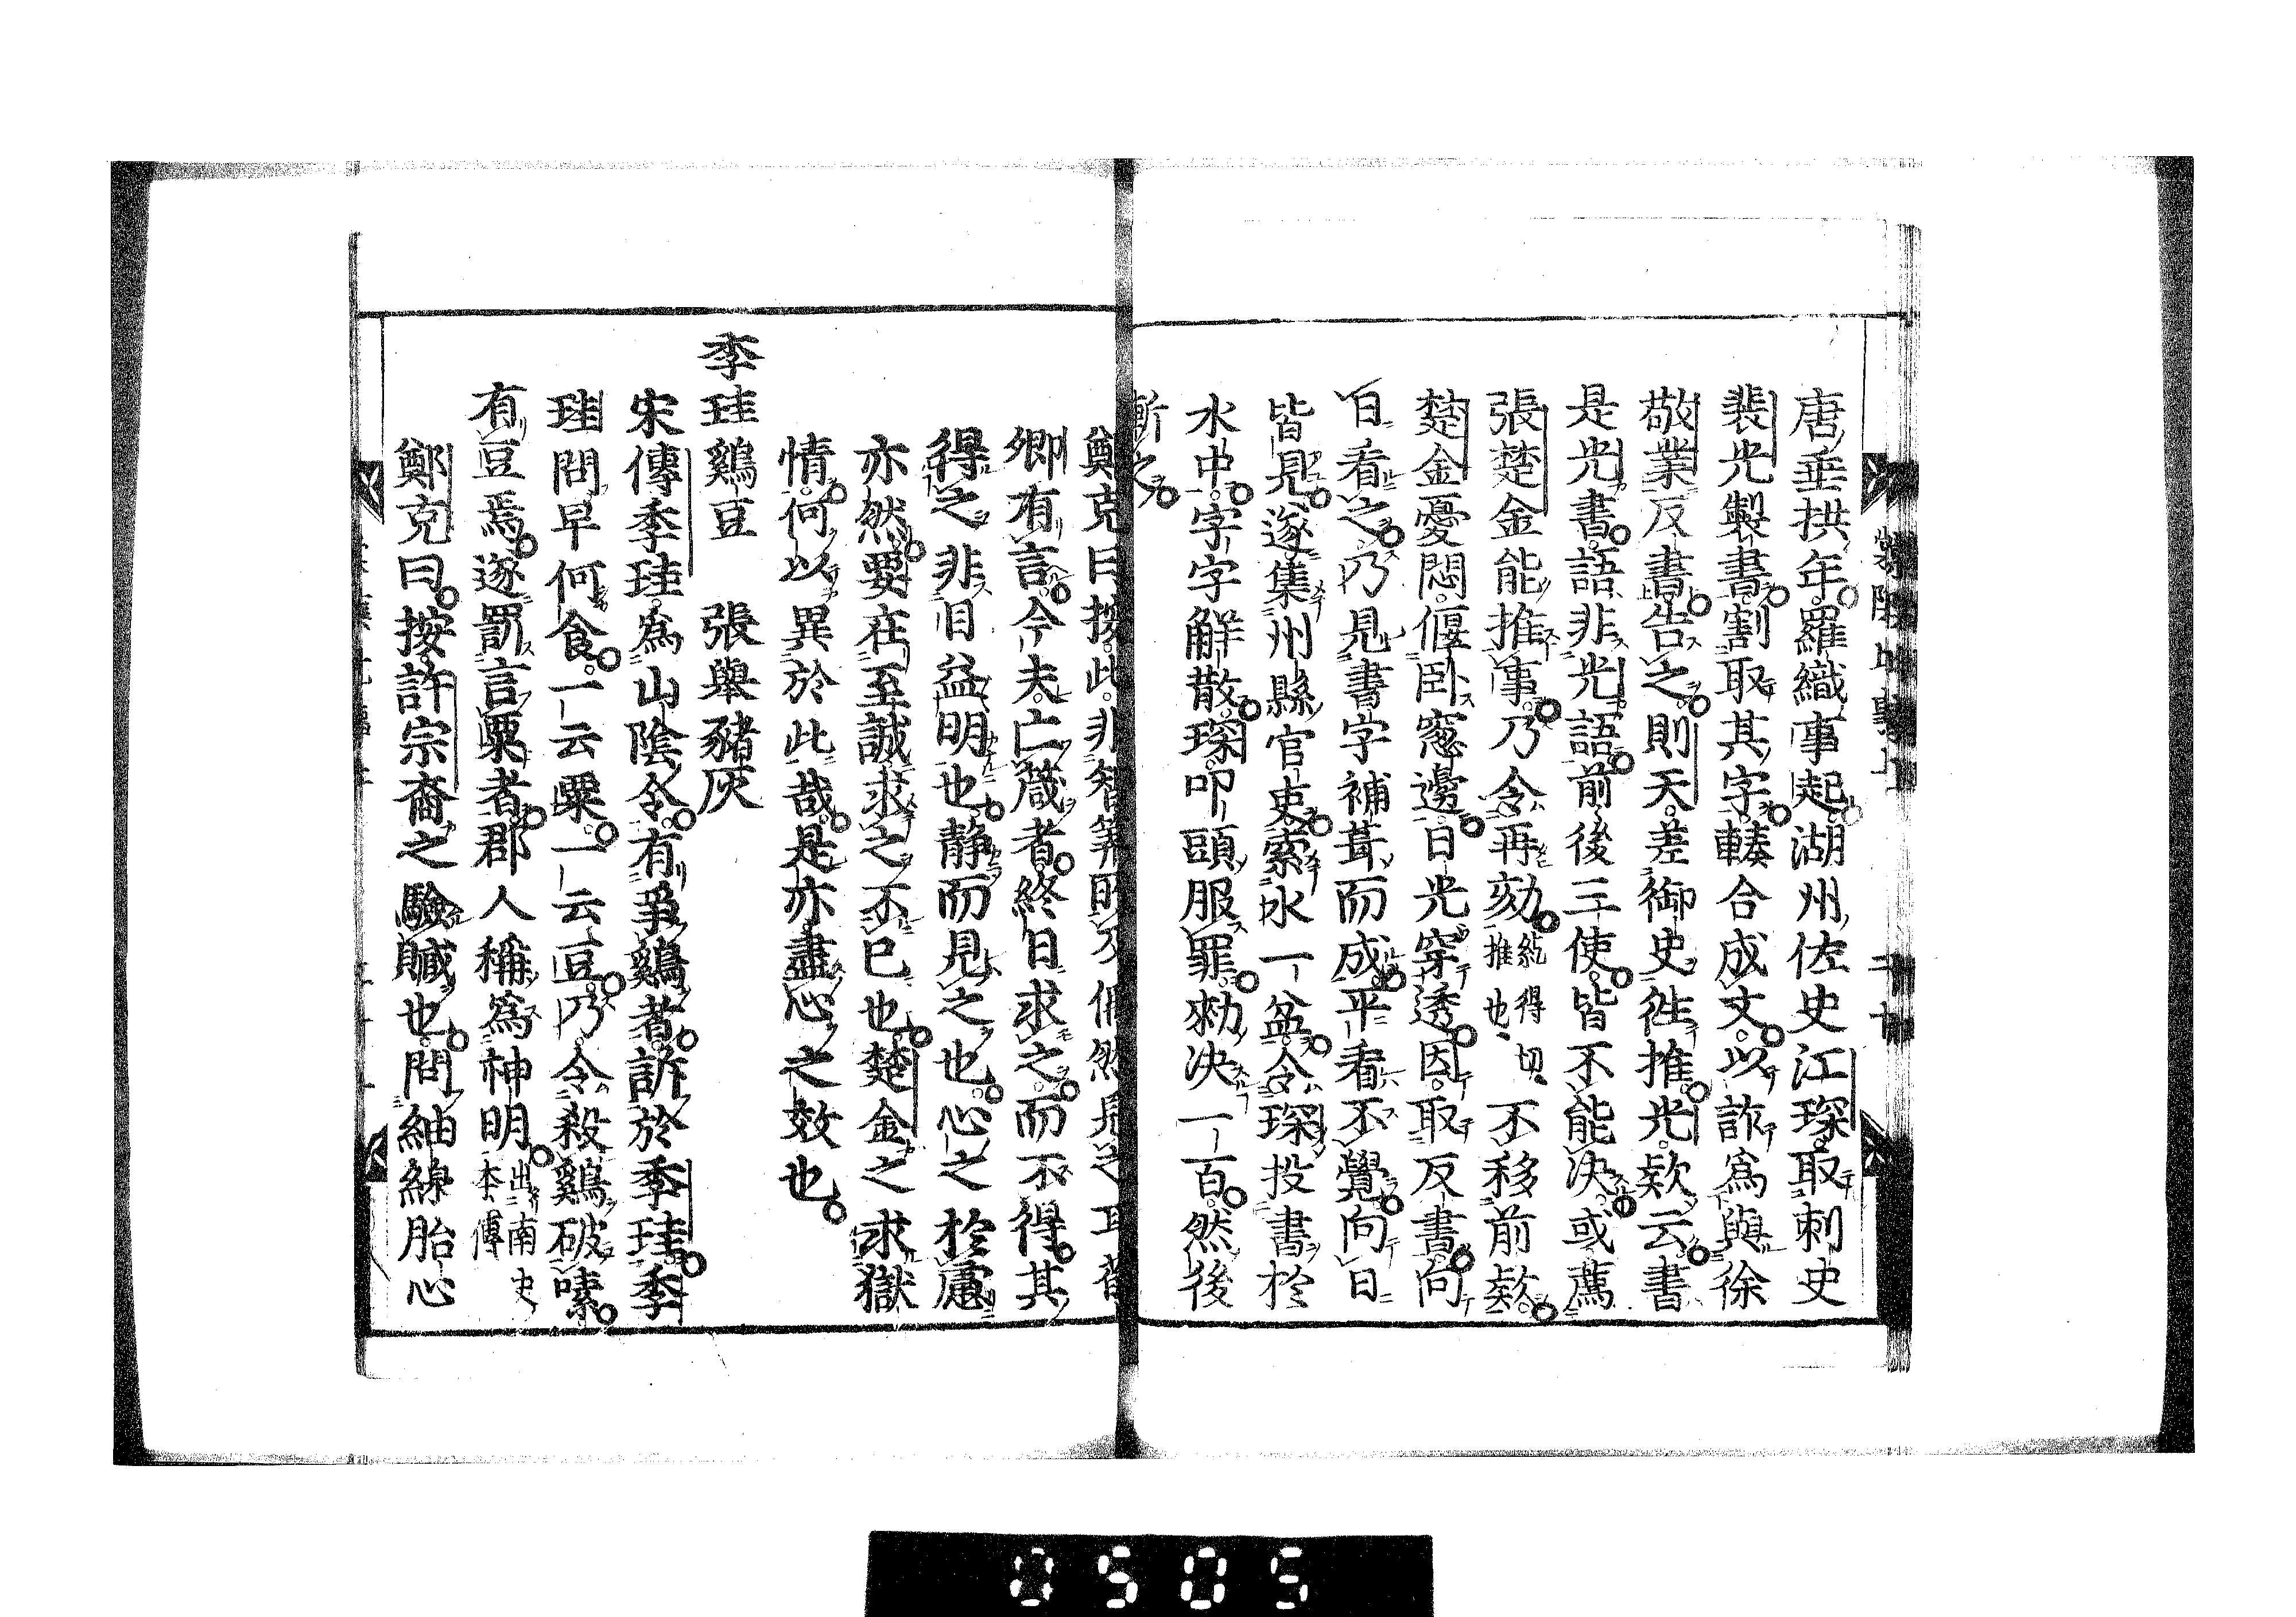 唐垂拱年羅織事起湖州佐史江琛取刺史
裴光製書割取其字輳合成文以詐為與徐
敬業反書告之則天差御史徃推光款云書
是光書語非光語前後三使皆不能決或薦
張楚金能推事乃令再劾紇得切推也不移前款
楚金憂悶偃卧窓邊日光穿透因取反書向
日看之乃見書字補葺而成平看不覺向日
皆見遂集州縣官吏索水一盆令琛投書於
水中字字解散琛叩頭服罪勑決一百然後
斬之
鄭克曰按此非智筭所及偶然見之耳荀
卿有言今夫亡箴者終日求之而不得其
得之非目益明也静而見之也心之於慮
亦然要在至誠求之不已也楚金之求獄
情何以異於此哉是亦盡心之效也
李珪鷄豆　張舉豬灰
宋傳季珪為山陰令有爭鷄者訴於季珪季
珪問早何食一云粟一云豆乃令殺鷄破嗉
有豆焉遂罰言粟者郡人稱為神明出南史本傳
鄭克曰按許宗裔之驗贓也問紬線胎心
0505